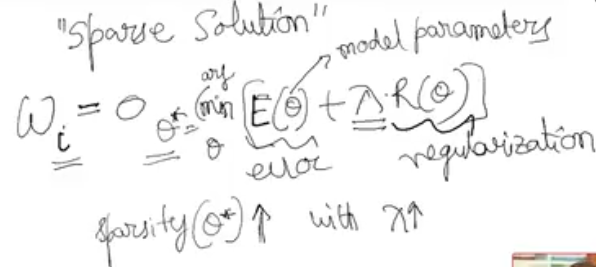 "Sparse Solution"
model parameters
ω_i = 0 θ* = arg min_θ [E(θ) + λ·R(θ)]
error regularization
sparsity(θ*) ↑ with λ↑